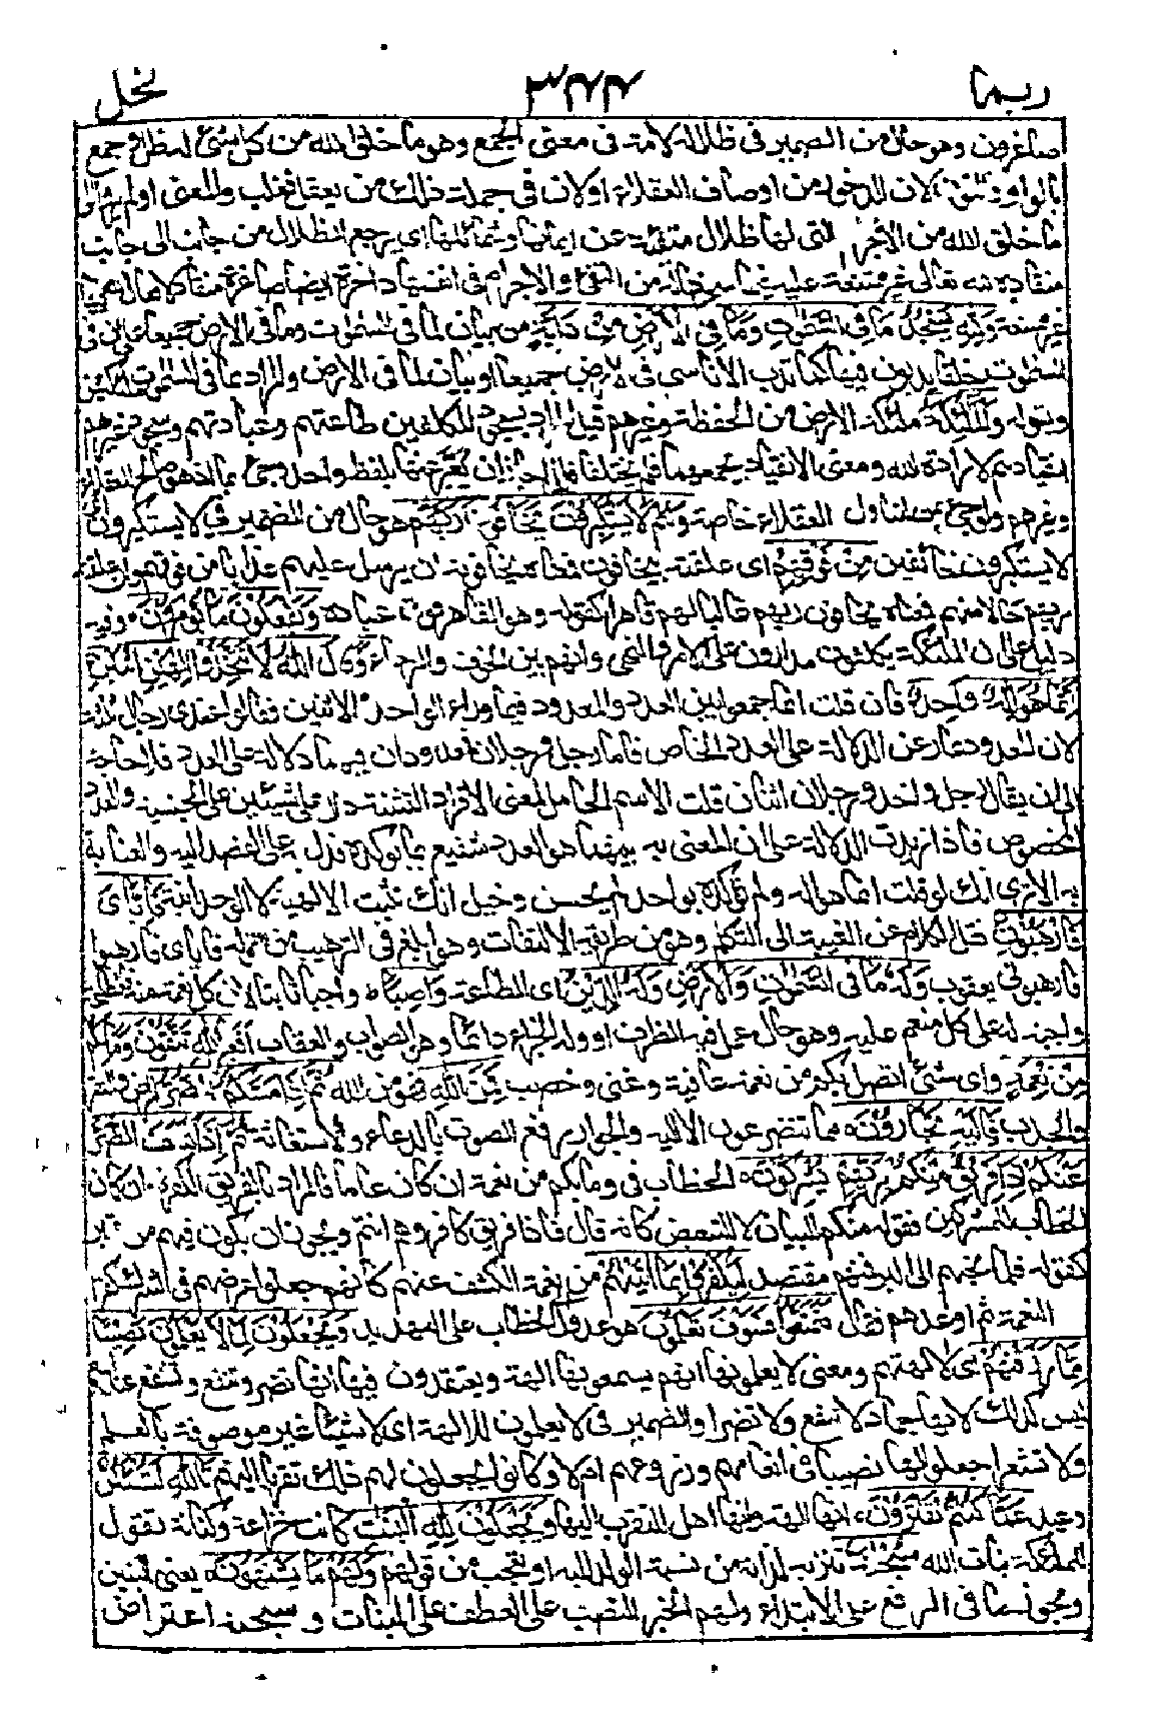 ربما ٣٤٤ نحل
صاغرون وهو حال من الضمير فى ظلاله لانه فى معنى الجمع وهو ما خلق الله من كل شئ له ظل وجمع
بالواو والنون لان الدخور من اوصاف العقلاء او لان فى جملة ذلك من يعقل فغلب والمعنى اولم يروا الى
ما خلق الله من الاجرام التى لها ظلال متفيئة عن ايمانها وشمائلها اى يرجع الظلال من جانب الى جانب
منقادة لله تعالى غير ممتنعة عليه فيما سخرها له من التفئ والاجرام فى انفسها داخرة ايضا صاغرة منقادة لافعال الله فيها
غير ممتنعة وَلِلّٰهِ يَسْجُدُ مَا فِى السَّمٰوٰتِ وَمَا فِى الْاَرْضِ مِنْ دَآبَّةٍ من بيان لما فى السموت وما فى الارض جميعا على ان فى
السموت خلقا يدبون فيها كما تدب الاناسى فى الارض جميعا او بيان لما فى الارض والمراد بما فى السموت ملئكتهن
وبقوله وَالْمَلٰٓئِكَةُ ملئكة الارض من الحفظة وغيرهم قيل المراد بسجود المكلفين طاعتهم وعبادتهم وبسجود غيرهم
انقيادهم لارادة الله ومعنى الانقياد يجمعهما فلم يختلفا فلذا جاز ان يعبر عنهما بلفظ واحد وجئ بما اذ هو صالح للعقلاء
وغيرهم ولو جئ بمن لتناول العقلاء خاصة وَهُمْ لَا يَسْتَكْبِرُوْنَ يَخَافُوْنَ رَبَّهُمْ هو حال من الضمير فى لا يستكبرون اى
لا يستكبرون خائفين مِنْ فَوْقِهِمْ اى علقته بيخافون فمعناه يخافونه ان يرسل عليهم عذابا من فوقهم وان علقته
بربهم حالا منهم فمعناه يخافون ربهم غالبا لهم قاهرا كقوله وهو القاهر فوق عباده وَيَفْعَلُوْنَ مَا يُؤْمَرُوْنَ وفيه
دليل على ان الملئكة مكلفون مدارون على الامر والنهى وانهم بين الخوف والرجاء وَقَالَ اللّٰهُ لَا تَتَّخِذُوْٓا اِلٰهَيْنِ اثْنَيْنِ
اِنَّمَا هُوَ اِلٰهٌ وَّاحِدٌ فان قلت انما جمعوا بين العدد والمعدود فيما وراء الواحد والاثنين فقالوا عندى رجال ثلثة
لان المعدود عار عن الدلالة على العدد الخاص فاما رجل ورجلان فمعدودان فيهما دلالة على العدد فلا حاجة
الى ان يقال رجل واحد ورجلان اثنان قلت الاسم الحامل لمعنى الافراد والتثنية دال على شيئين على الجنسية والعدد
المخصوص فاذا اريدت الدلالة على ان المعنى به منهما هو العدد شفع بما يؤكده فدل به على القصد اليه والعناية
به الا ترى انك لو قلت انما هو اله ولم تؤكده بواحد لم يحسن وخيل انك تثبت الالهية لا الوحدانية فَاِيَّايَ
فَارْهَبُوْنِ نقل الكلام عن الغيبة الى التكلم وهو من طريقة الالتفات وهو ابلغ فى الترهيب من قوله فاياى فارهبوا
فارهبونى يعقوب وَلَهٗ مَا فِى السَّمٰوٰتِ وَالْاَرْضِ وَلَهُ الدِّيْنُ اى الطاعة وَاصِبًا واجبا ثابتا لان كل نعمة منه فالطاعة
واجبة له على كل منعم عليه وهو حال عمل فيه الظرف او وله الجزاء دائما وهو الثواب والعقاب اَفَغَيْرَ اللّٰهِ تَتَّقُوْنَ وَمَا بِكُمْ
مِّنْ نِّعْمَةٍ واى شئ اتصل بكم من نعمة عافية وغنى وخصب فَمِنَ اللّٰهِ فهو من الله ثُمَّ اِذَا مَسَّكُمُ الضُّرُّ المرض والفقر
والجدب فَاِلَيْهِ تَجْئَرُوْنَ فما تتضرعون الا اليه والجوار رفع الصوت بالدعاء والاستغاثة ثُمَّ اِذَا كَشَفَ الضُّرَّ
عَنْكُمْ اِذَا فَرِيْقٌ مِّنْكُمْ بِرَبِّهِمْ يُشْرِكُوْنَ الخطاب فى وما بكم من نعمة ان كان عاما فالمراد بالفريق الكفرة وان كان
الخطاب للمشركين فقوله منكم للبيان لا للتبعيض كانه قال فاذا فريق كافر وهم انتم ويجوز ان يكون فيهم من اعتبر
كقوله فلما نجهم الى البر فمنهم مقتصد لِيَكْفُرُوْا بِمَآ اٰتَيْنٰهُمْ من نعمة الكشف عنهم كانهم جعلوا غرضهم فى الشرك كفران
النعمة ثم اوعدهم فقال فَتَمَتَّعُوْا فَسَوْفَ تَعْلَمُوْنَ هو عدول الى الخطاب على التهديد وَيَجْعَلُوْنَ لِمَا لَا يَعْلَمُوْنَ نَصِيْبًا
مِّمَّا رَزَقْنٰهُمْ اى لالهتهم ومعنى لا يعلمونها انهم يسمونها الهة ويعتقدون فيها انها تضر وتنفع وتشفع عند الله
وليس كذلك لانها جماد لا تنفع ولا تضر او الضمير فى لا يعلمون للالهة اى لاشياء غير موصوفة بالعلم
ولا تشعر اجعلوا لها نصيبا فى انعامهم وزروعهم ام لا وكانوا يجعلون لهم ذلك تقربا اليهم تَاللّٰهِ لَتُسْئَلُنَّ
وعيد عَمَّا كُنْتُمْ تَفْتَرُوْنَ انها الهة وانها اهل للتقرب اليها وَيَجْعَلُوْنَ لِلّٰهِ الْبَنٰتِ كانت خزاعة وكنانة تقول
الملئكة بنات الله سُبْحٰنَهٗ تنزيه لذاته من نسبة الولد اليه او تعجب من قولهم وَلَهُمْ مَّا يَشْتَهُوْنَ يعنى البنين
ويجوز فى ما الرفع على الابتداء ولهم الخبر والنصب على العطف على البنات وسبحنه اعتراض